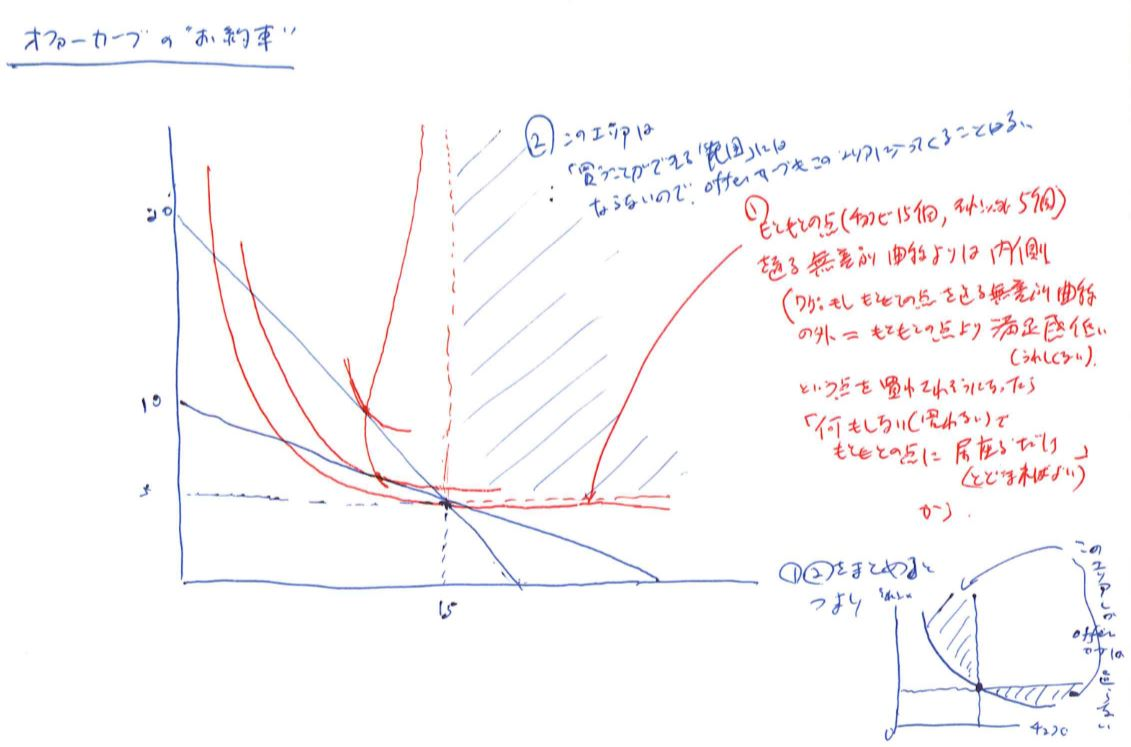 オファーカーブの"お約束"
② このエリアは
「買うことができる範囲」には
ならないので、offerカーブもこのエリアに入ってくることはない
①
もともとの点(チョコで15個, 5個)
を通る無差別曲線よりは内側
(もしもともとの点を通る無差別曲線
の外 = もともとの点より満足感低い
(うれしくない).
という点を買わされそうになったら
「何もしない(買わない)で
もともとの点に居座るだけ」
(とどまればよい)
から.
20
10
5
15
①②をまとめると
つまり
この
エリアしか
offer
カーブは
通らない
チョコ